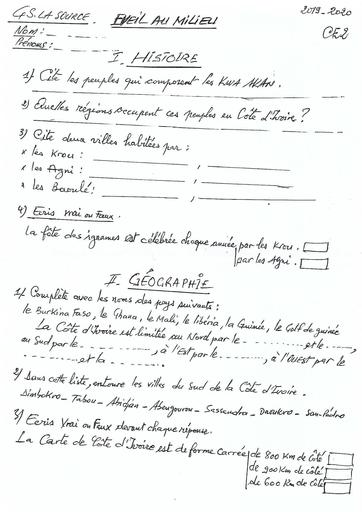 G.S. LA SOURCE. EVEIL AU MILIEU 2019-2020
Nom: CE2
Prénoms:
I. HISTOIRE
1) Cite les peuples qui composent les KWA AKAN.
2) Quelles régions occupent ces peuples en Côte d'Ivoire?
3) Cite deux villes habitées par:
* les Krou: ,
* les Agni: ,
* les Baoulé: ,
4) Ecris vrai ou Faux.
La fête des ignames est célébrée chaque année par les Krou.
par les Agni.
II. GÉOGRAPHIE
1) Complète avec les noms des pays suivants:
le Burkina Faso, le Ghana, le Mali, le libéria, la Guinée, le Golf de guinée
La Côte d'Ivoire est limitée au Nord par le et le
au Sud par le , à l'Est par le , à l'Ouest par le
et la
2) Dans cette liste, entoure les villes du Sud de la Côte d'Ivoire.
Dimbokro - Tabou - Abidjan - Abengourou - Sassandra - Daoukro - San-Pédro
3) Ecris Vrai ou Faux devant chaque réponse.
La Carte de Côte d'Ivoire est de forme Carrée de 800 Km de Côté
de 900 Km de Côté
de 600 Km de Côté